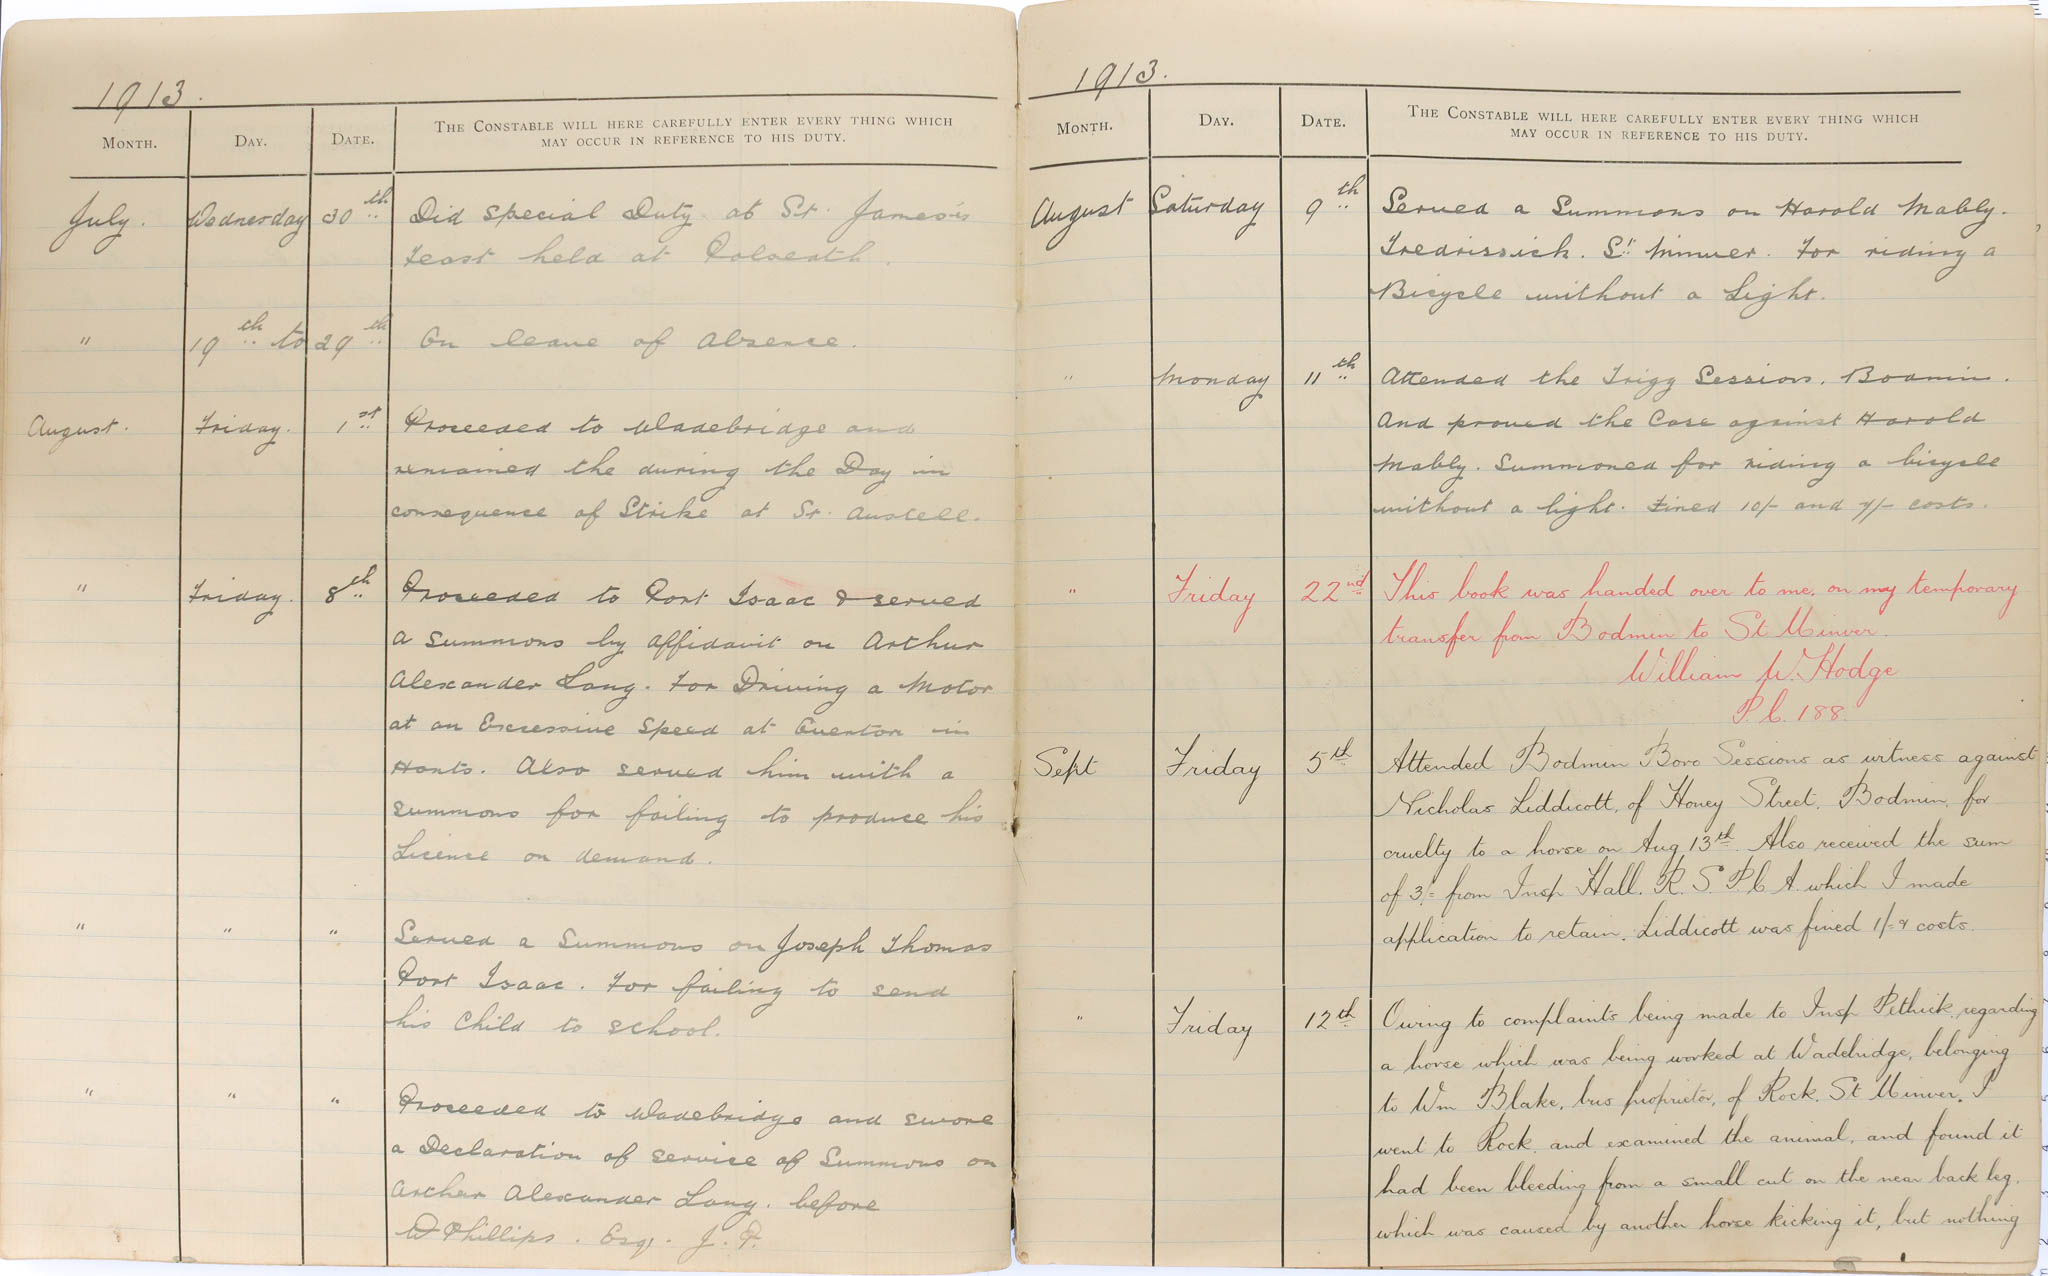 1913.
MONTH. DAY. DATE. THE CONSTABLE WILL HERE CAREFULLY ENTER EVERY THING WHICH
MAY OCCUR IN REFERENCE TO HIS DUTY.
July. Wednesday 30th Did Special Duty at St. James's
Feast held at Polzeath.
" 19th to 29th On leave of Absence.
August. Friday. 1st Proceeded to Wadebridge and
remained the during the Day in
consequence of Strike at St. Austell.
" Friday. 8th Proceeded to Port Isaac & served
a summons by affidavit on Arthur
Alexander Lang. For Driving a Motor
at an Excessive Speed at Everton in
Hants. Also served him with a
summons for failing to produce his
Licence on demand.
" " " Served a Summons on Joseph Thomas
Port Isaac. For failing to send
his Child to school.
" " " Proceeded to Wadebridge and swore
a Declaration of service of Summons on
Arther Alexander Lang. before
W Phillips. Esq. J. P.
1913.
MONTH. DAY. DATE. THE CONSTABLE WILL HERE CAREFULLY ENTER EVERY THING WHICH
MAY OCCUR IN REFERENCE TO HIS DUTY.
August Saturday 9th Served a Summons on Harold Mably.
Tredrissick. St Minver. For riding a
Bicycle without a Light.
" Monday 11th Attended the Trigg Session. Bodmin.
And proved the Case against Harold
Mably. Summoned for riding a bicycle
without a light. Fined 10/- and 4/- costs.
" Friday 22nd This book was handed over to me, on my temporary
transfer from Bodmin to St Minver.
William W. Hodge
P.C. 188.
Sept Friday 5th Attended Bodmin Boro Sessions as witness against
Nicholas Liddicott, of Honey Street, Bodmin, for
cruelty to a horse on Aug 13th. Also received the sum
of 3/= from Insp Hall. R. S. P. C A. which I made
application to retain. Liddicott was fined 1/= & costs.
" Friday 12th Owing to complaints being made to Insp Pethick, regarding
a horse which was being worked at Wadebridge, belonging
to Wm Blake, bus proprietor, of Rock. St Minver. I
went to Rock, and examined the animal, and found it
had been bleeding from a small cut on the near back leg,
which was caused by another horse kicking it, but nothing